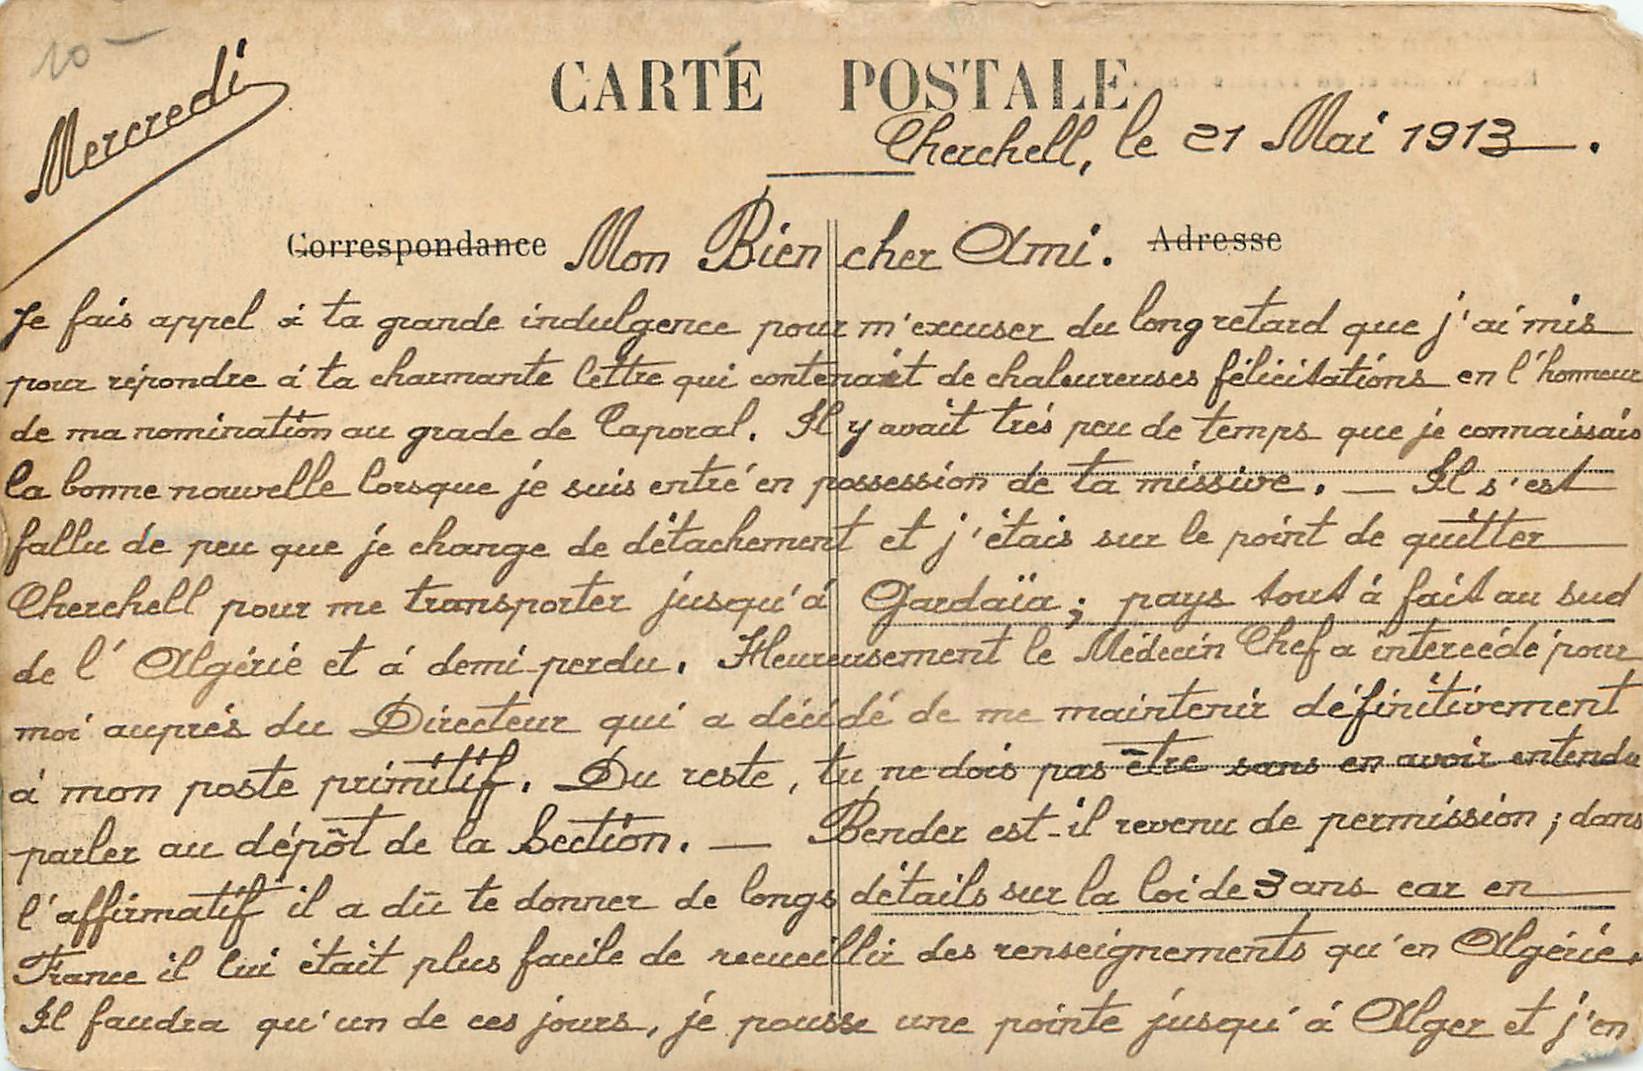 10 —
Mercredi
CARTE POSTALE
Cherchell, le 21 Mai 1913 .
Correspondance Mon Bien cher Ami. Adresse
Je fais appel à ta grande indulgence pour m'excuser du long retard que j'ai mis
pour répondre à ta charmante lettre qui contenait de chaleureuses félicitations en l'honneur
de ma nomination au grade de Caporal. Il y avait trés peu de temps que je connaissais
la bonne nouvelle lorsque je suis entré en possession de ta missive. — Il s'est
fallu de peu que je change de détachement et j'étais sur le point de quitter
Cherchell pour me transporter jusqu'à Gardaïa ; pays tout à fait au sud
de l'Algérie et à demi-perdu. Heureusement le Médecin Chef a intercédé pour
moi auprés du Directeur qui a décidé de me maintenir définitivement
à mon poste primitif. Du reste, tu ne dois pas être sans en avoir entendu
parler au dépôt de la Section. — Bender est-il revenu de permission ; dans
l'affirmatif il a dû te donner de longs détails sur la loi de 3 ans car en
France il lui était plus facile de recueillir des renseignements qu'en Algérie.
Il faudra qu'un de ces jours, je pousse une pointe jusqu'à Alger et j'en